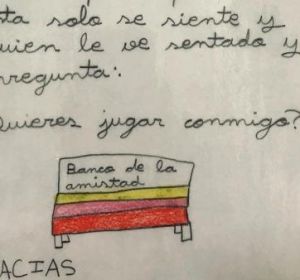 ta solo se siente y
uien le ve sentado y
regunta:
uieres jugar conmigo?
Banco de la
amistad
ACIAS